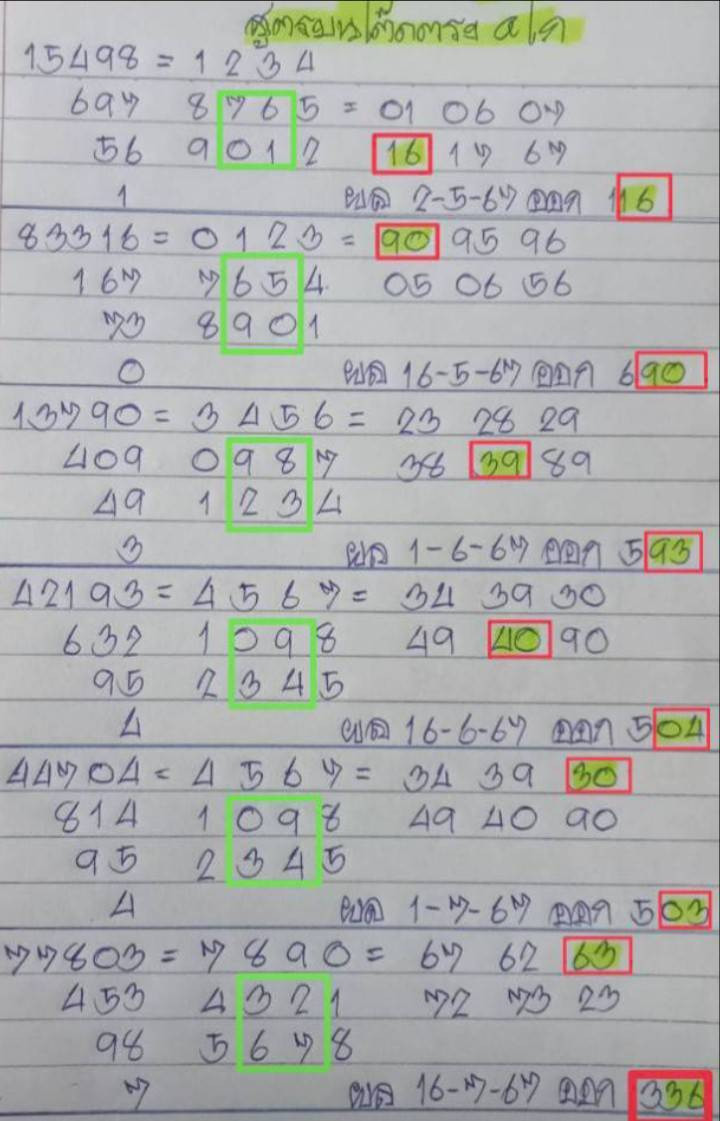 สูตรบน เด็ดตรง ๆ
15498 = 1 2 3 4
697 8 7 6 5 = 01 06 07
56 9 0 1 2 16 17 67
1 ผล 2-5-67 ออก 116
83316 = 0 1 2 3 = 90 95 96
167 7 6 5 4 05 06 56
73 8 9 0 1
0 ผล 16-5-67 ออก 690
13790 = 3 4 5 6 = 23 28 29
409 0 9 8 7 38 39 89
49 1 2 3 4
3 ผล 1-6-67 ออก 593
42193 = 4 5 6 7 = 34 39 30
632 1 0 9 8 49 40 90
95 2 3 4 5
4 ผล 16-6-67 ออก 504
44704 = 4 5 6 7 = 34 39 30
814 1 0 9 8 49 40 90
95 2 3 4 5
4 ผล 1-7-67 ออก 503
77803 = 7 8 9 0 = 67 62 63
453 4 3 2 1 72 73 23
98 5 6 7 8
7 ผล 16-7-67 ออก 336